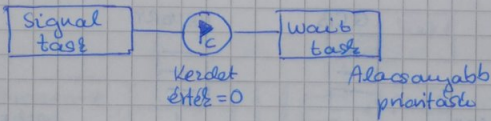 Signal
task
C
wait
task
Kezdet
érték = 0
Alacsonyabb
prioritású